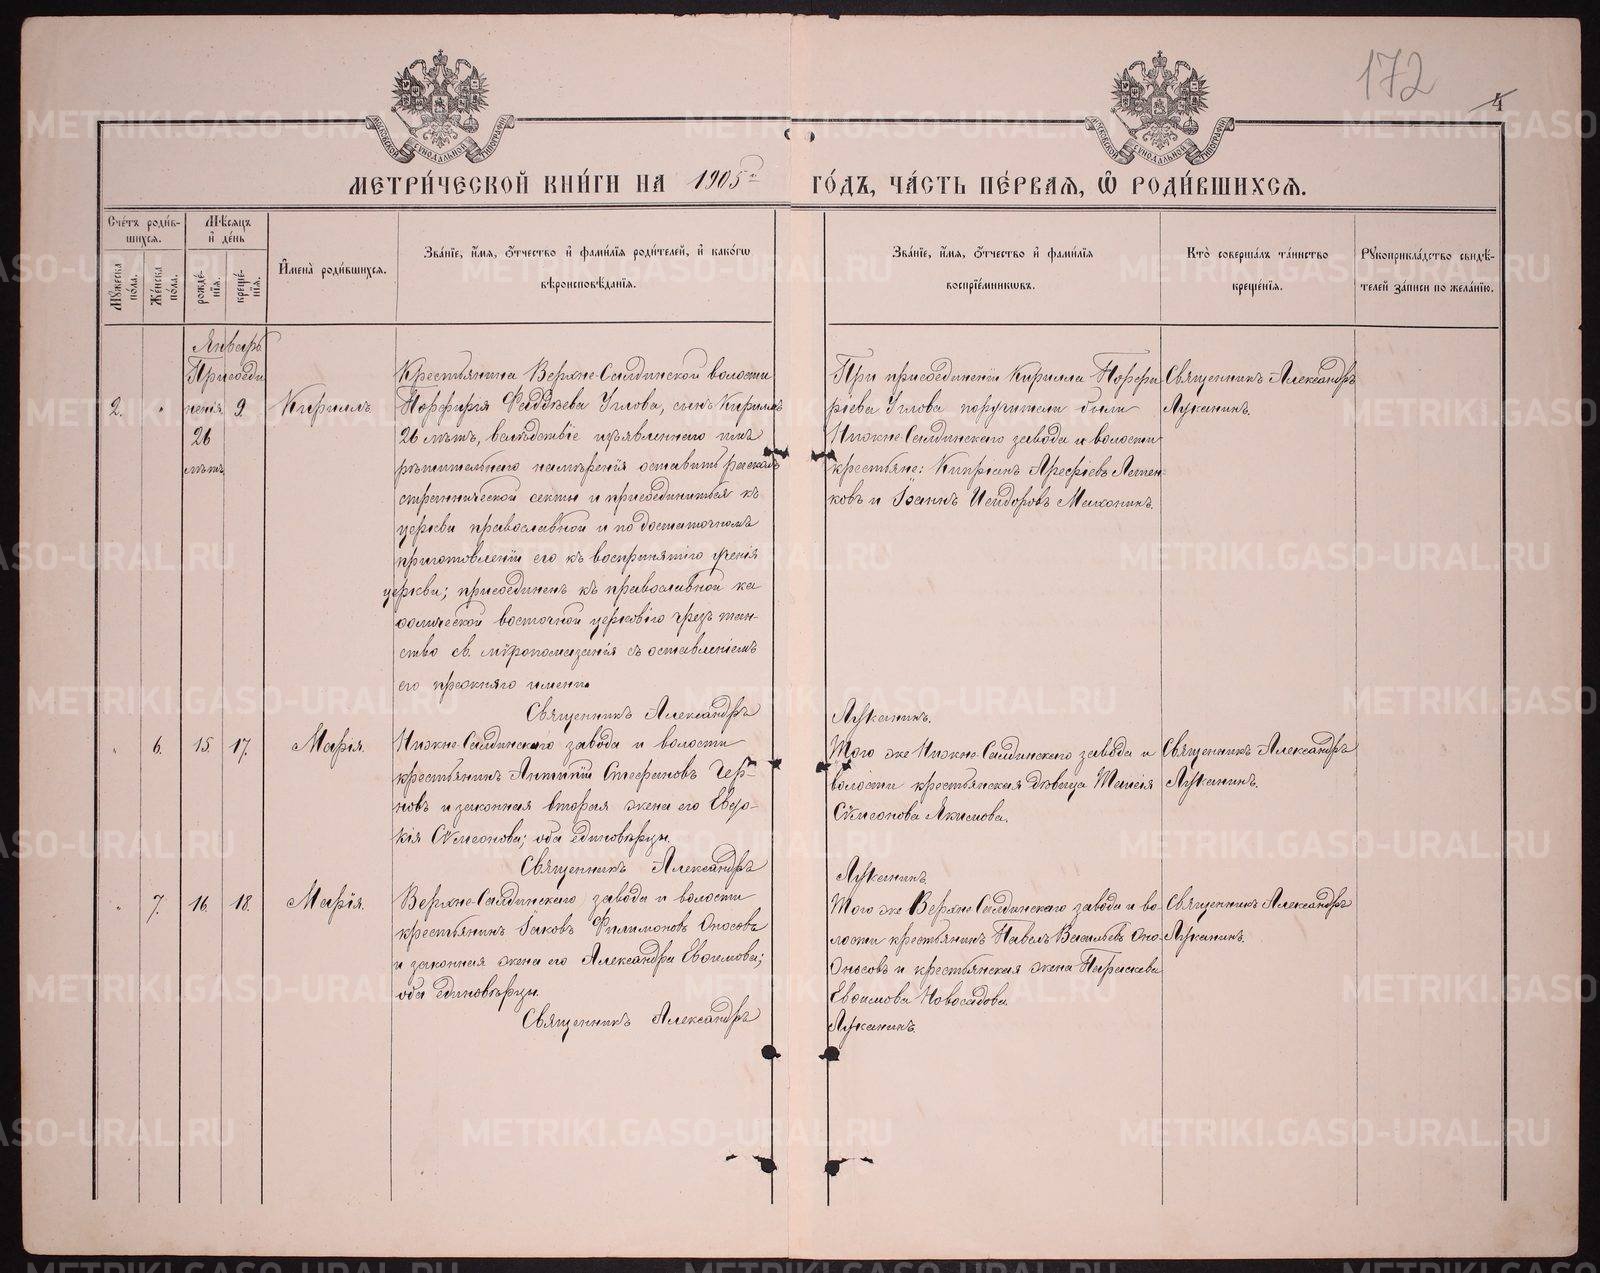 172
4
МОСКОВСКОЙ СѴНОДАЛЬНОЙ ТИПОГРАФІИ
МОСКОВСКОЙ СѴНОДАЛЬНОЙ ТИПОГРАФІИ
МЕТРИ́ЧЕСКОЙ КНИ́ГИ НА 1905й ГО́ДЪ, ЧА́СТЬ ПЕ́РВАѦ, Ѽ РОДИ́ВШИХСѦ.
Сче́тъ роди́в-
шихсѧ.
Мꙋжеска по́ла.
Же́нска по́ла.
Мѣ́сѧцъ
и҆ де́нь
рожде́-
нїѧ.
креще́-
нїѧ.
И҆мена̀ роди́вшихсѧ.
Зва́нїе, и҆́мѧ, ѻ҆́тчество и҆ фами́лїѧ роди́телей, и҆ како́гѡ
вѣроисповѣ́данїѧ.
Зва́нїе, и҆́мѧ, ѻ҆́тчество и҆ фами́лїѧ
воспрїе́мникѡвъ.
Кто̀ соверша́лъ та́инство
креще́нїѧ.
Рꙋкоприкла́дство свидѣ́-
телей за́писи по жела́нїю.
Январь
Присоеди
ненія
26
лѣтъ
2. „ 9. Кириллъ.
Крестьянина Верхне-Салдинской волости
Порфирія Фаддѣева Углова, сынъ Кириллъ
26 лѣтъ, вслѣдствіе изъявленнаго имъ
рѣшительнаго намѣренія оставить расколъ
страннической секты и присоединиться къ
церкви православной и по достаточномъ
приготовленіи его къ воспринятію ученія
церкви; присоединенъ къ православной ка
ѳолической восточной церковію чрезъ таин-
ство св. мѵропомазанія съ оставленіемъ
его прежняго имени.
Священникъ Александръ
При присоединеніи Кирилла Порфи
ріева Углова поручители были
Нижне-Салдинскаго завода и волости
крестьяне: Кипріанъ Арефіевъ
ковъ и Іоаннъ Исидоровъ
Луканинъ.
Священникъ Александръ
Луканинъ.
„ 6. 15. 17. Марія.
Нижне-Салдинскаго завода и волости
крестьянинъ Антипій Стефановъ Чер-
новъ и законная вторая жена его Евдо-
кія Сѵмеонова; оба единовѣрцы.
Священникъ Александръ
Того же Нижне-Салдинскаго завода и
волости крестьянская дѣвица Таисія
Сѵмеонова Якимова.
Луканинъ.
Священникъ Александръ
Луканинъ.
„ 7. 16. 18. Марія.
Верхне-Салдинскаго завода и волости
крестьянинъ Іаковъ Филимоновъ Оносовъ
и законная жена его Александра Евѳимова;
оба единовѣрцы.
Священникъ Александръ
Того же Верхне-Салдинскаго завода и во-
лости крестьянинъ Павелъ Васильевъ Оно-
Оносовъ и крестьянская жена Параскева
Евѳимова Новосадова.
Луканинъ.
Священникъ Александръ
Луканинъ.
METRIKI.GASO-URAL.RU